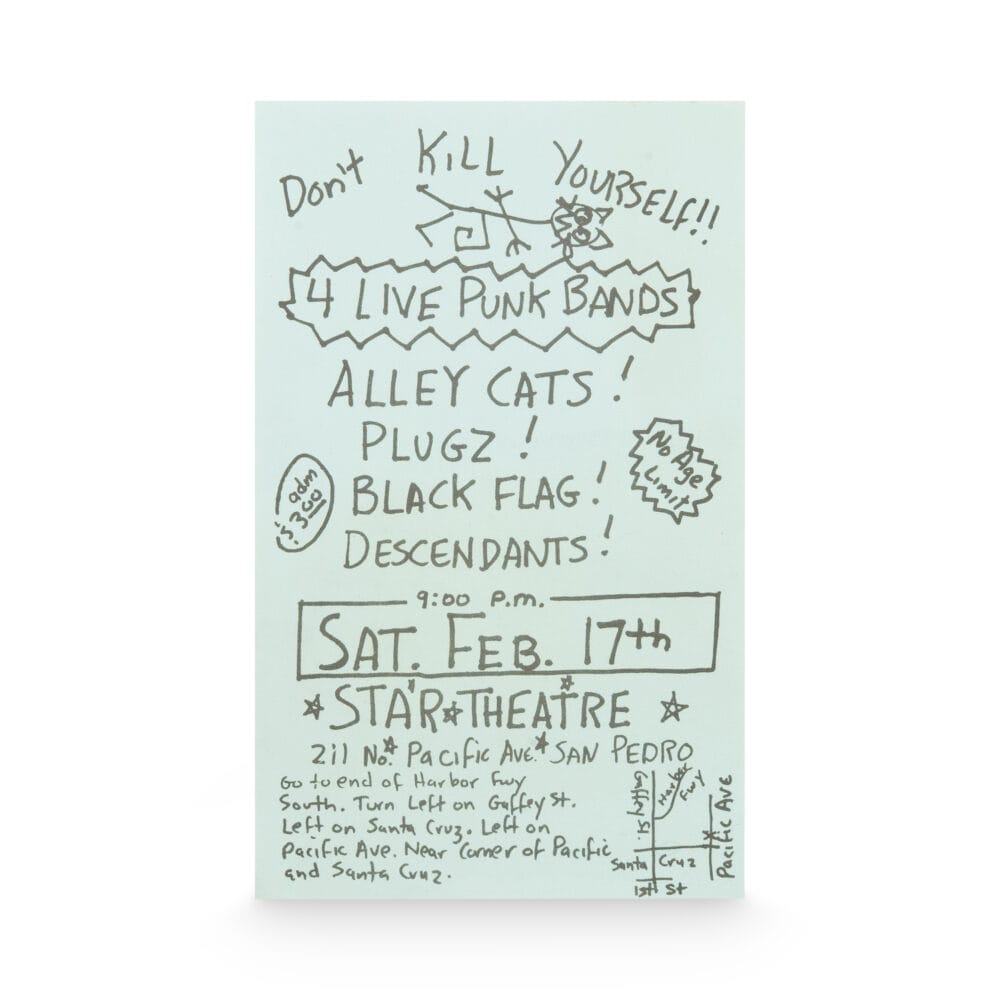 Don't KiLL YOURSELf!!
4 LIVE PUNK BANDS
ALLEY CATS!
PLUGZ!
No Age
Limit
adm
$3.00
BLACK FLAG!
DESCENDANTS!
9:00 P.m.
SAT. FEB. 17th
STAR THEATRE
211 No. Pacific Ave. SAN PEDRO
Go to end of Harbor Fwy
South. Turn Left on Gaffey St.
Left on Santa Cruz. Left on
Pacific Ave. Near Corner of Pacific
and Santa Cruz.
Gaffey St.
Harbor
Fwy
Pacific Ave
Santa Cruz
1st St